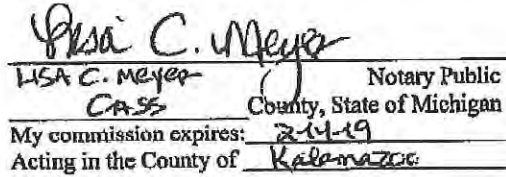 Lisa C. Meyer
LISA C. Meyer Notary Public
CASS County, State of Michigan
My commission expires: 2-14-19
Acting in the County of Kalamazoo